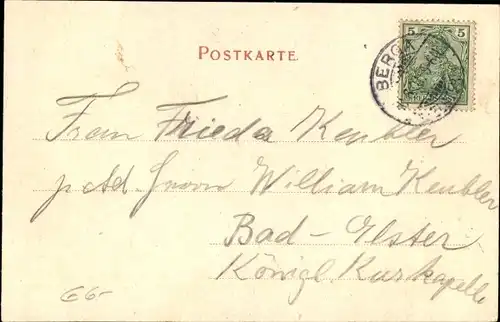 POSTKARTE.
5 5
BERGA
Frau Frieda Keubler
p. Ad. Herrn William Keubler
Bad-Elster
Königl. Kurkapelle
66-